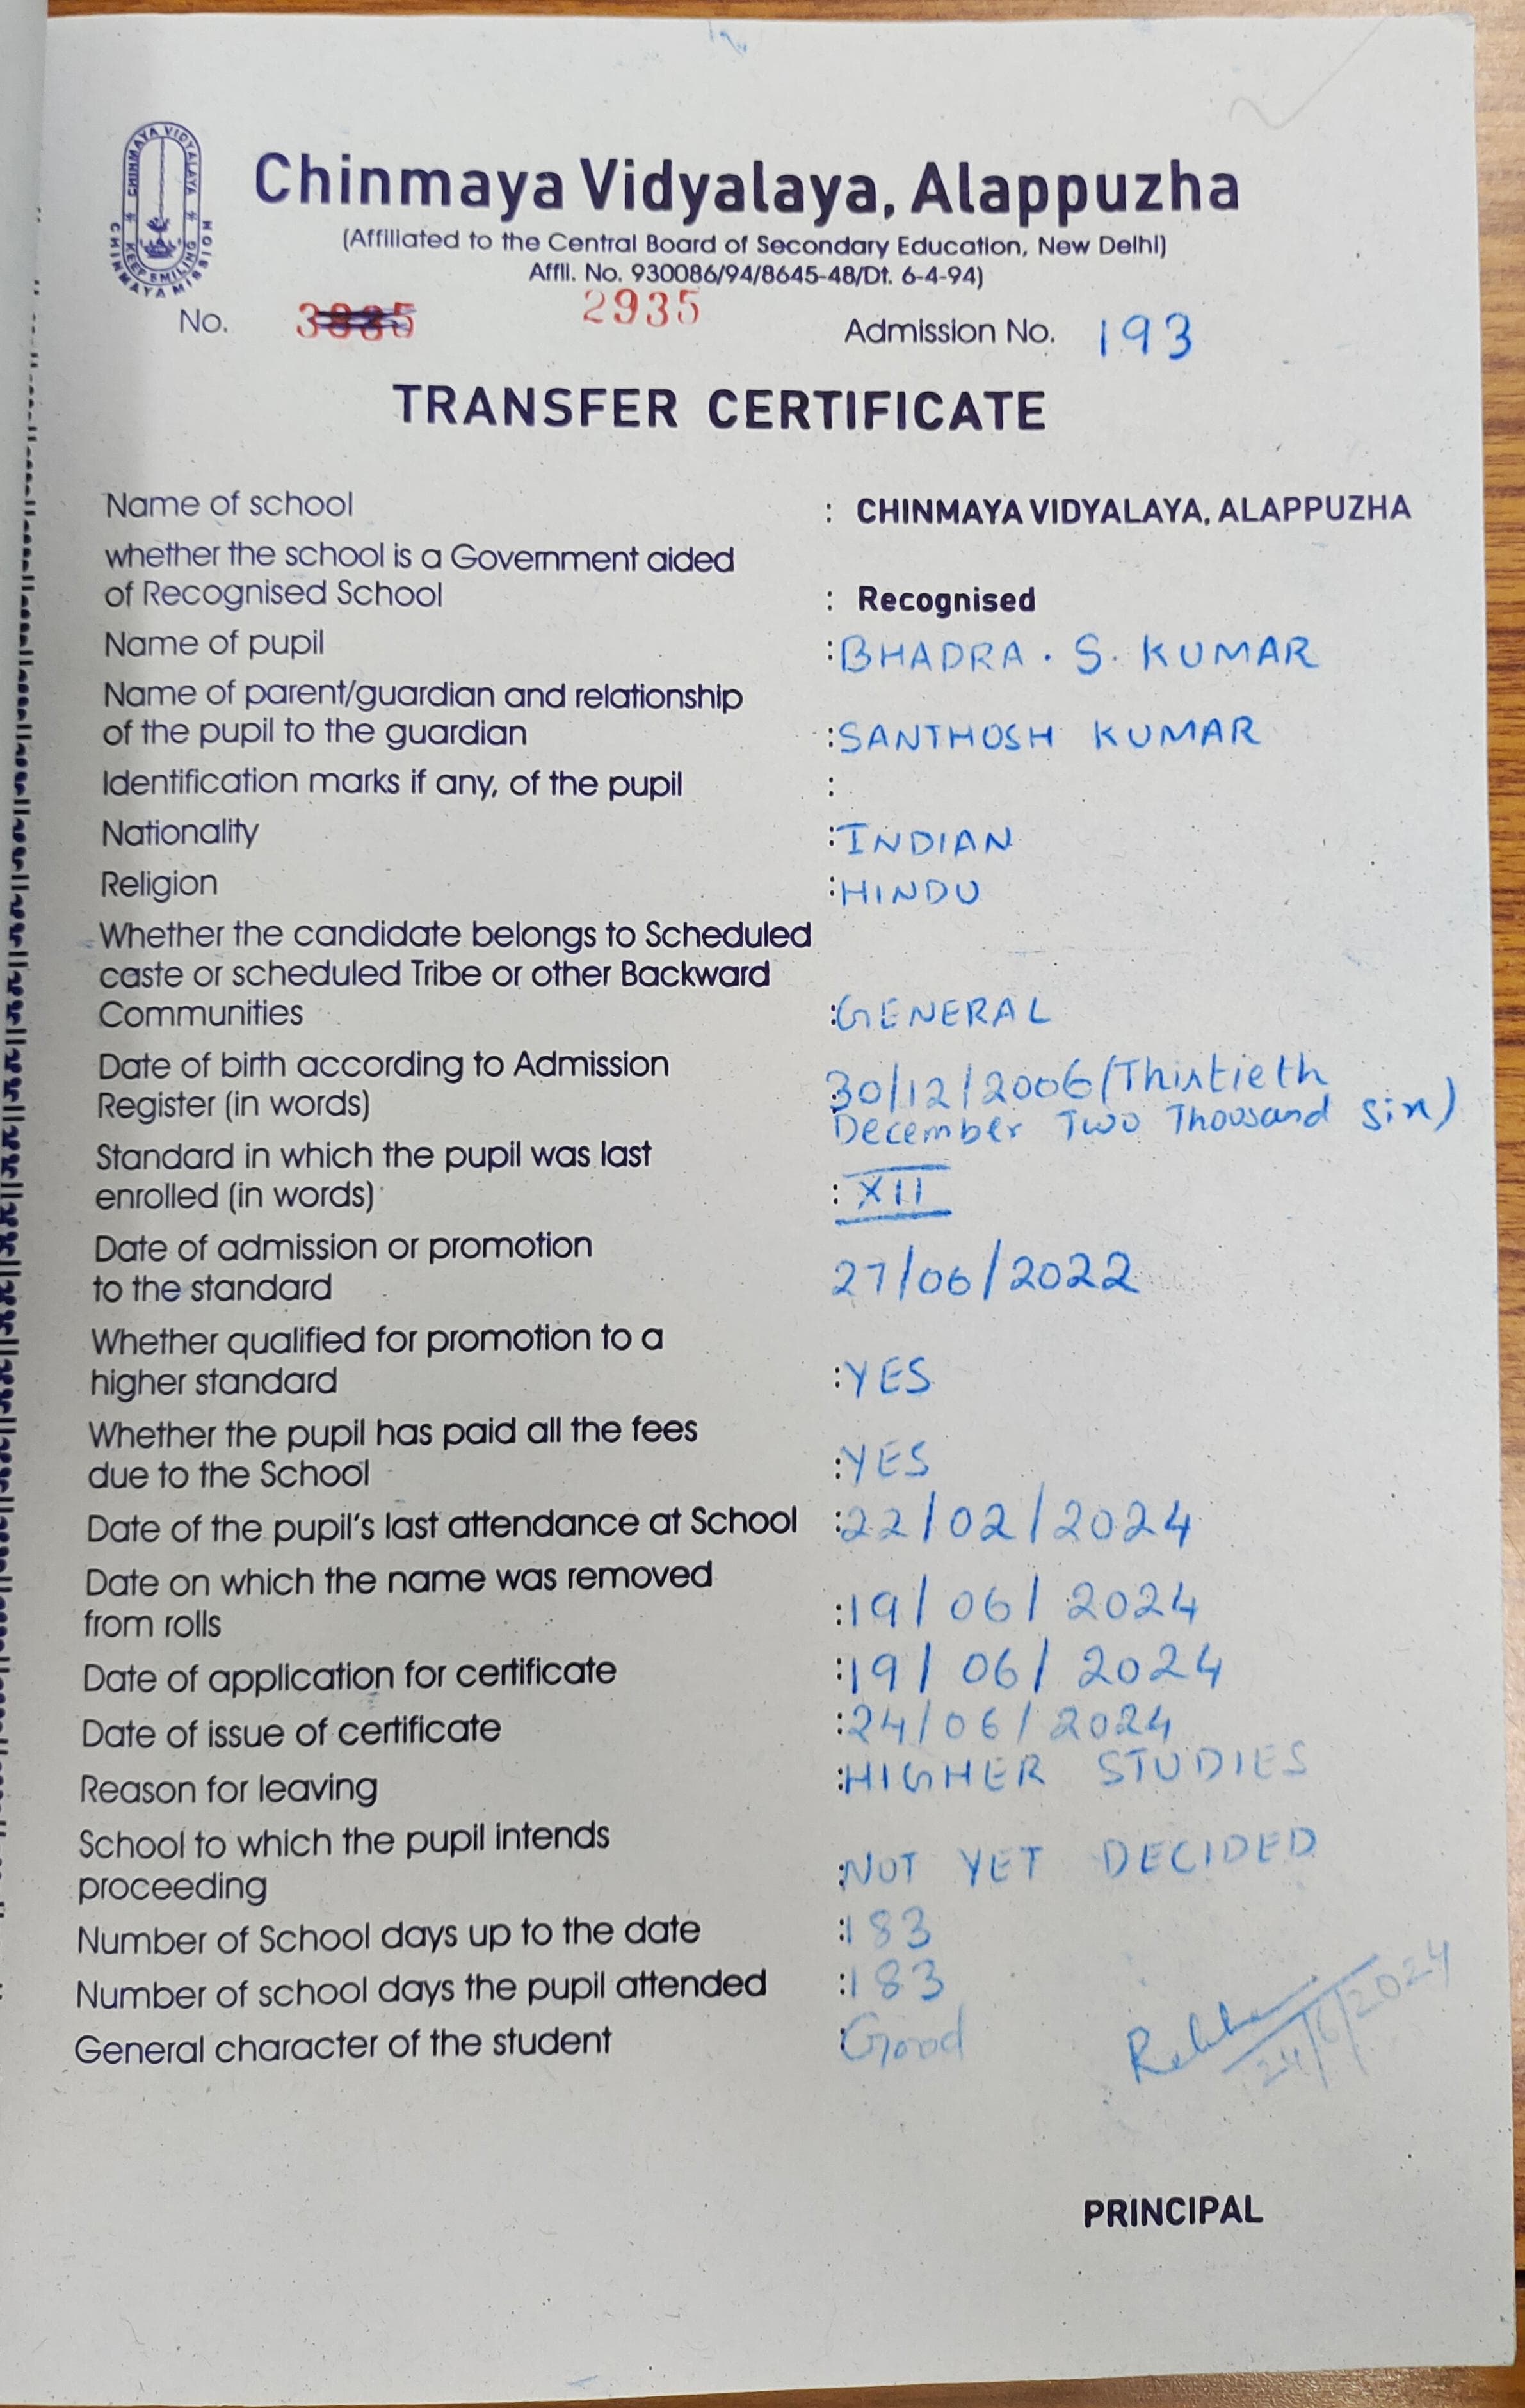 CHINMAYA VIDYALAYA
KEEP SMILING
CHINMAYA MISSION
Chinmaya Vidyalaya, Alappuzha
(Affiliated to the Central Board of Secondary Education, New Delhi)
Affli. No. 930086/94/8645-48/Dt. 6-4-94)
No. 2935 Admission No. 193
TRANSFER CERTIFICATE
Name of school : CHINMAYA VIDYALAYA, ALAPPUZHA
whether the school is a Government aided
of Recognised School : Recognised
Name of pupil : BHADRA . S. KUMAR
Name of parent/guardian and relationship
of the pupil to the guardian : SANTHOSH KUMAR
Identification marks if any, of the pupil :
Nationality : INDIAN
Religion : HINDU
Whether the candidate belongs to Scheduled
caste or scheduled Tribe or other Backward
Communities : GENERAL
Date of birth according to Admission : 30/12/2006 (Thirtieth
Register (in words) December Two Thousand Six)
Standard in which the pupil was last
enrolled (in words) : XII
Date of admission or promotion
to the standard 27/06/2022
Whether qualified for promotion to a
higher standard : YES
Whether the pupil has paid all the fees
due to the School : YES
Date of the pupil's last attendance at School : 22/02/2024
Date on which the name was removed
from rolls : 19/06/2024
Date of application for certificate : 19/06/2024
Date of issue of certificate : 24/06/2024
Reason for leaving : HIGHER STUDIES
School to which the pupil intends
proceeding : NOT YET DECIDED
Number of School days up to the date : 183
Number of school days the pupil attended : 183
General character of the student : Good
24/6/2024
PRINCIPAL